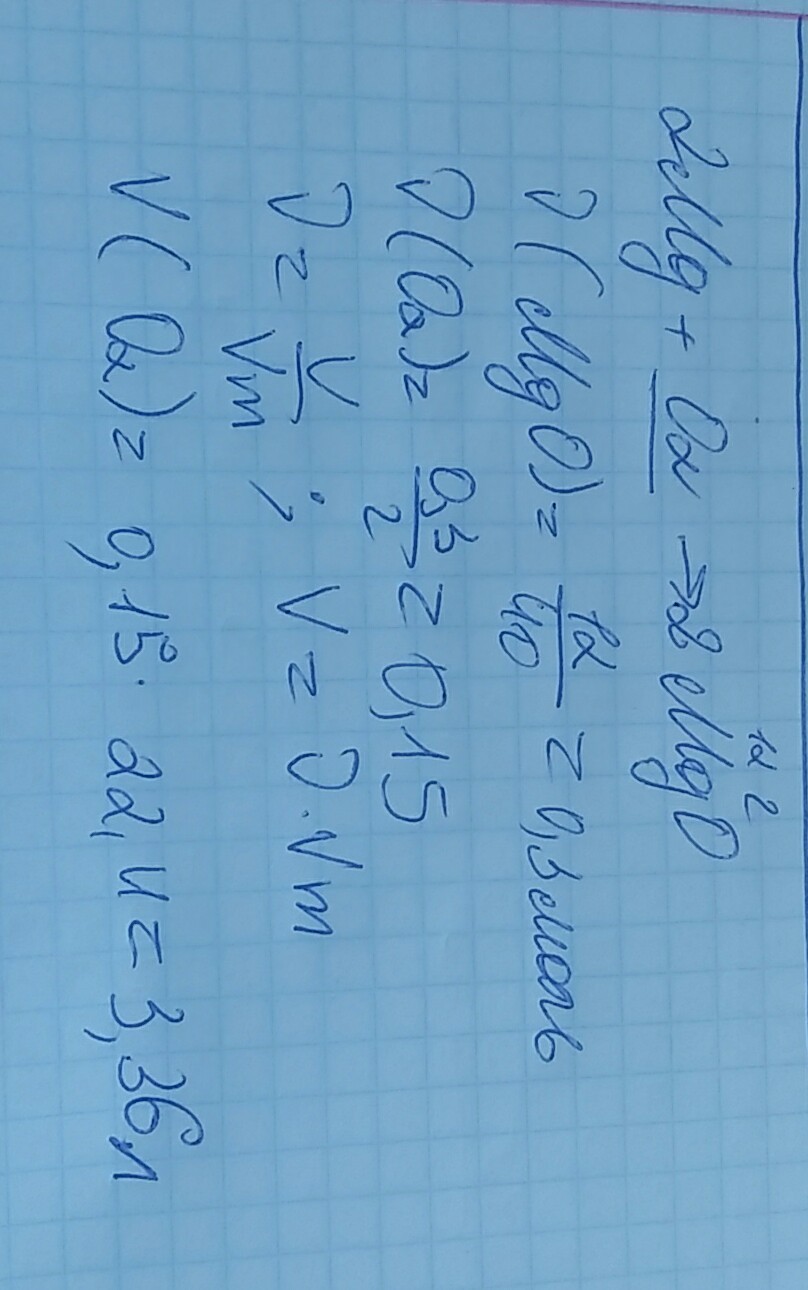 12 г
2Mg + O₂ → 2MgO
ν(MgO) = 12/40 = 0,3 моль
ν(O₂) = 0,3/2 = 0,15
ν = V/Vm ; V = ν · Vm
V(O₂) = 0,15 · 22,4 = 3,36 л